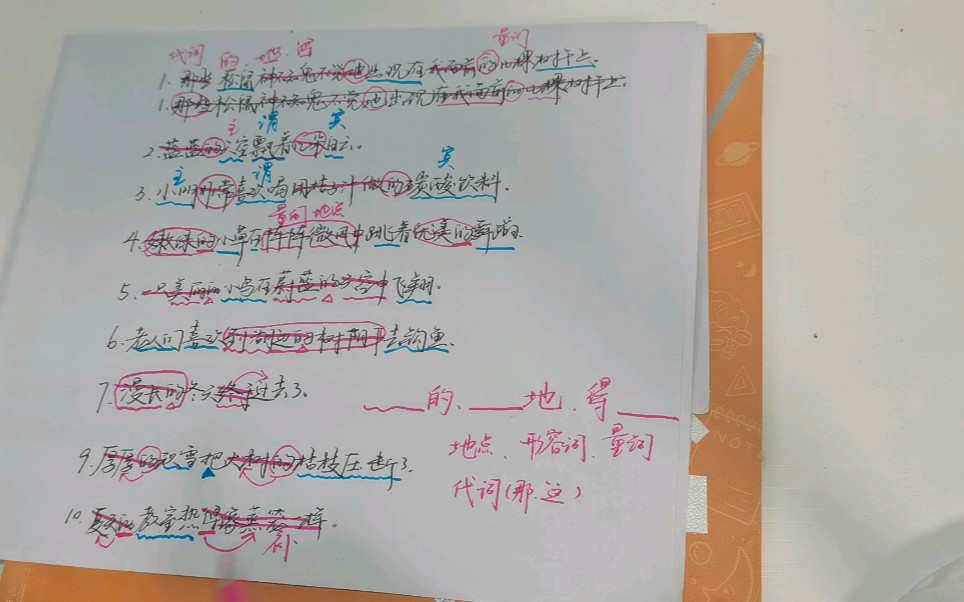 代词 的.地.得 量词
1.那些松鼠神不知鬼不觉地出现在我面前的几棵树干上.
1.那些松鼠神不知鬼不觉地出现在我面前的几棵树干上.
主 谓 宾
2.蓝蓝的天空飘着几朵白云.
主 谓 宾
3.小明非常喜欢喝用桔子汁做的碳酸饮料.
量词 地点
4.嫩绿的小草在阵阵微风中跳着优美的舞蹈.
5.一只美丽的小鸟在蔚蓝的天空中飞翔.
6.老人们喜欢到湖边的树阴下去钓鱼.
7.漫长的冬天终于过去了.
的、地.得
9.厚厚的积雪把大树的枯枝压断了.
地点、形容词、量词
代词(那.这)
10.夏天的教室热得像蒸笼一样.
补
NOT